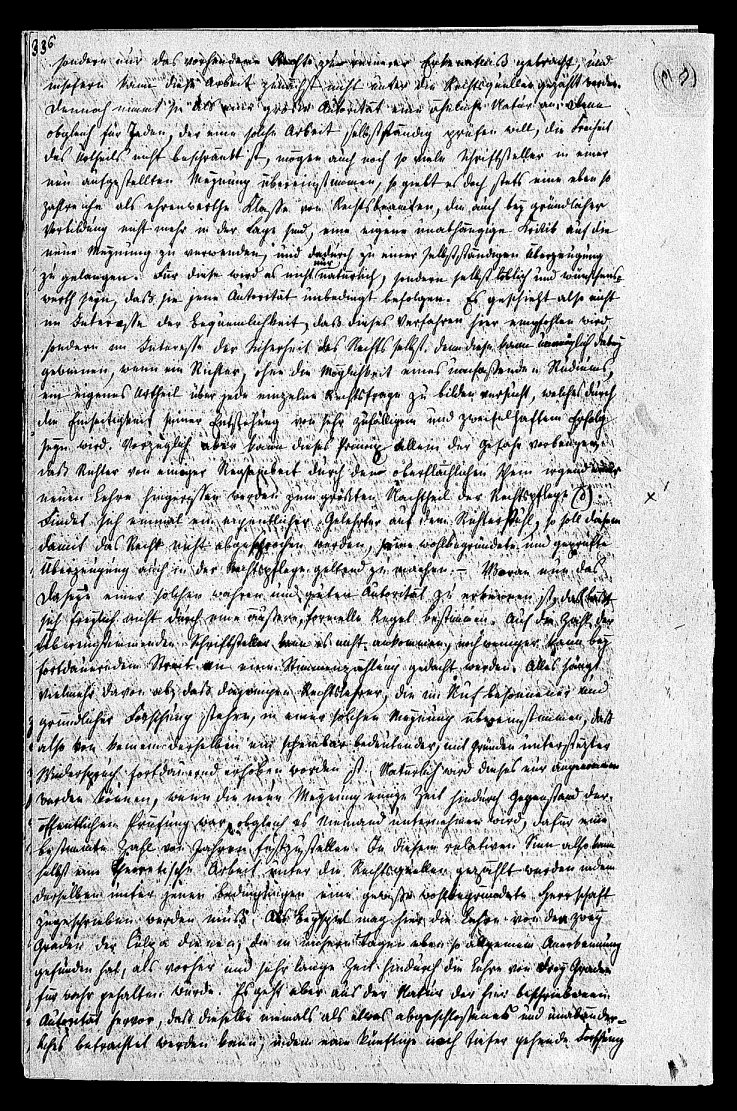 336
sondern nur das vorhandene Recht zu reinerer Erkenntniß gebracht, und
insofern kann diese Arbeit zunächst nicht unter die Rechtsquellen gezählt werden.
Dennoch nimmt sie als eine große Autorität eine ähnliche Natur an. Denn
obgleich für Jeden, der eine solche Arbeit selbstständig prüfen will, die Freiheit
des Urtheils nicht beschränkt ist, mögen auch noch so viele Schriftsteller in einer
neu aufgestellten Meynung übereinstimmen, so giebt es doch stets eine eben so
zahlreiche als ehrenwerthe Klasse von Rechtsbeamten, die auch bey gründlicher
Vorbildung nicht mehr in der Lage sind, eine eigene unabhängige Kritik auf die
neue Meynung zu verwenden, und dadurch zu einer selbstständigen Überzeugung
zu gelangen. Für diese wird es nicht nur natürlich, sondern selbst löblich und wünschens-
werth seyn, daß sie jene Autorität unbedingt befolgen. Es geschieht also nicht
im Interesse der Bequemlichkeit, daß dieses Verfahren hier empfohlen wird
sondern im Interesse der Sicherheit des Rechts selbst. denn diese kann unmöglich dabey
gewinnen, wenn ein Richter, ohne die Möglichkeit eines umfassenden Studiums,
ein eigenes Urtheil über jede einzelne Rechtsfrage zu bilden versucht, welches durch
die Einseitigkeit seiner Entstehung von sehr zufälligem und zweifelhaftem Erfolg
seyn wird. Vorzüglich aber kann dieses Princip allein der Gefahr vorbeugen,
daß Richter von einiger Regsamkeit durch den oberflächlichen Schein irgend einer
neuen Lehre hingerissen werden zum größten Nachtheil der Rechtspflege (d).
Findet sich einmal ein eigentlicher Gelehrter auf dem Richterstuhl, so soll diesem
damit das Recht nicht abgesprochen werden, seine wohlbegründete und geprüfte
Überzeugung auch in der Rechtspflege geltend zu machen. – Woran nun das
Daseyn einer solchen wahren und guten Autorität zu erkennen ist, das läßt
sich freylich nicht durch eine äußere, formelle Regel bestimmen. Auf die Zahl der
übereinstimmenden Schriftsteller kann es nicht ankommen, noch weniger kann bey
fortdauerndem Streit an eine Stimmenzählung gedacht werden. Alles hängt
vielmehr davon ab, daß diejenigen Rechtslehrer, die im Ruf besonnener und
gründlicher Forschung stehen, in einer solchen Meynung übereinstimmen, daß
also von keinem derselben ein scheinbar bedeutender, mit Gründen unterstützter
Widerspruch fortdauernd erhoben worden ist. Natürlich wird dieses nur angenommen
werden können, wenn die neue Meynung einige Zeit hindurch Gegenstand der
öffentlichen Prüfung war, obgleich es Niemand unternehmen wird, dafür eine
bestimmte Zahl von Jahren festzustellen. In diesem relativen Sinn also kann
selbst eine theoretische Arbeit unter die Rechtsquellen gezählt werden indem
derselben unter jenen Bedingungen eine gewisse wohlbegründete Herrschaft
zugeschrieben werden muß. Als Beyspiel mag hier die Lehre von den zwey
Graden der Culpa dienen, die in unseren Tagen eben so allgemein Anerkennung
gefunden hat, als vorher und sehr lange Zeit hindurch die Lehre von drey Graden
für wahr gehalten wurde. Es geht aber aus der Natur der hier beschriebenen
Autorität hervor, daß dieselbe niemals als etwas abgeschlossenes und unabänder-
liches betrachtet werden kann, indem eine künftige noch tiefer gehende Forschung